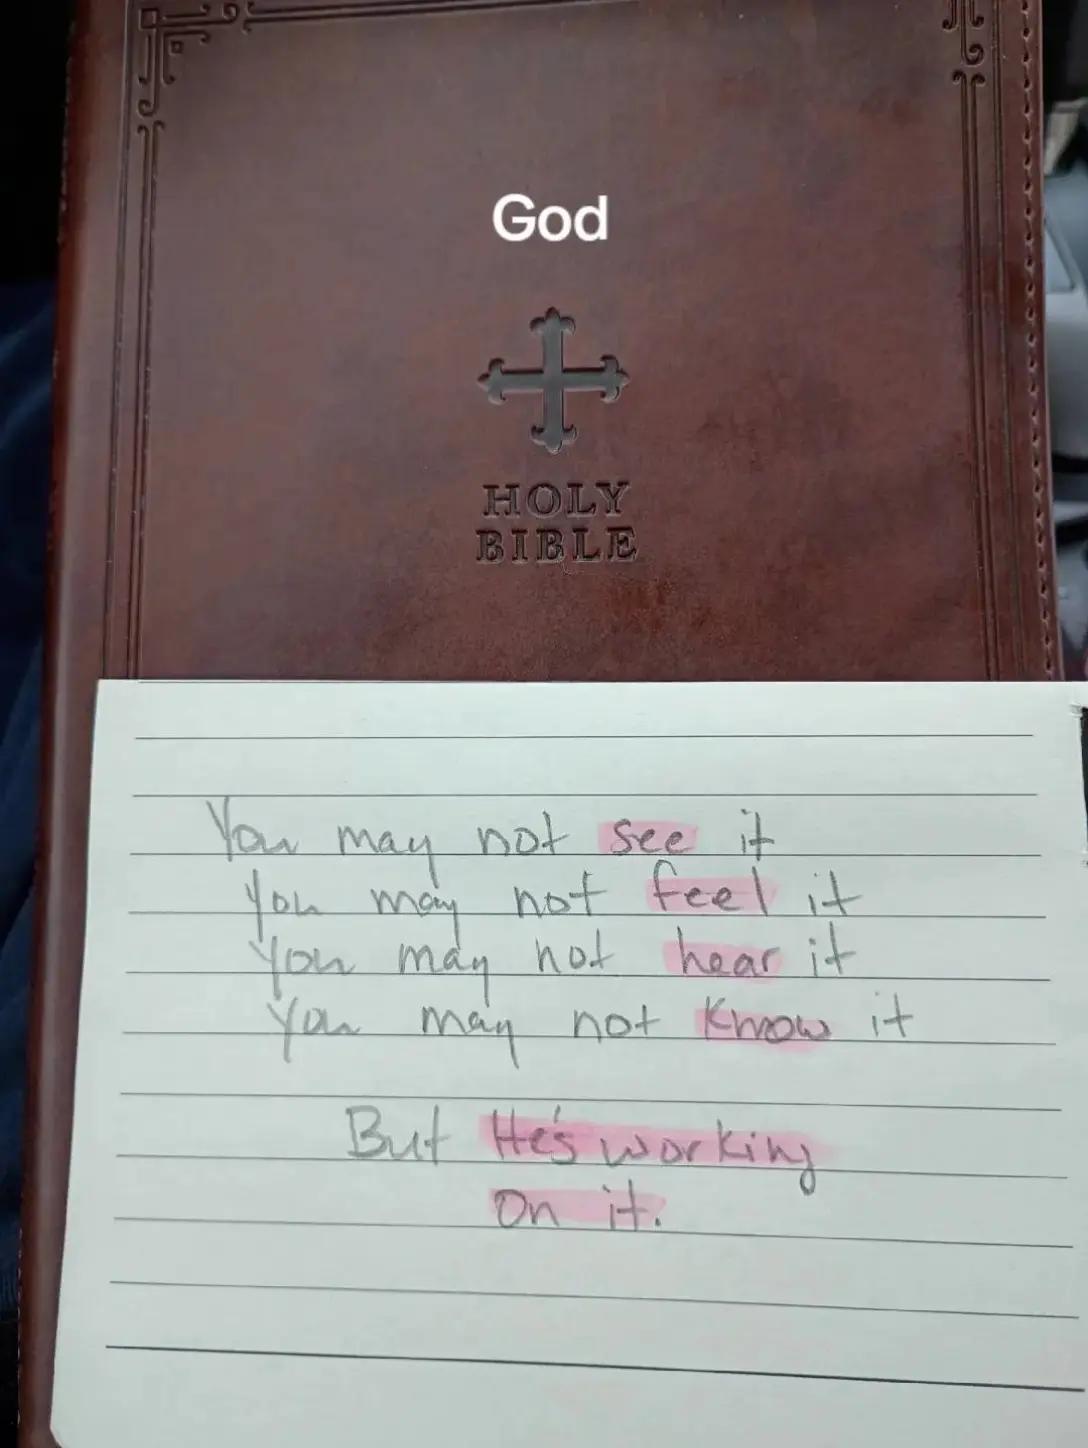 God
HOLY
BIBLE
You may not see it
You may not feel it
You may not hear it
You may not know it
But He's working
On it.